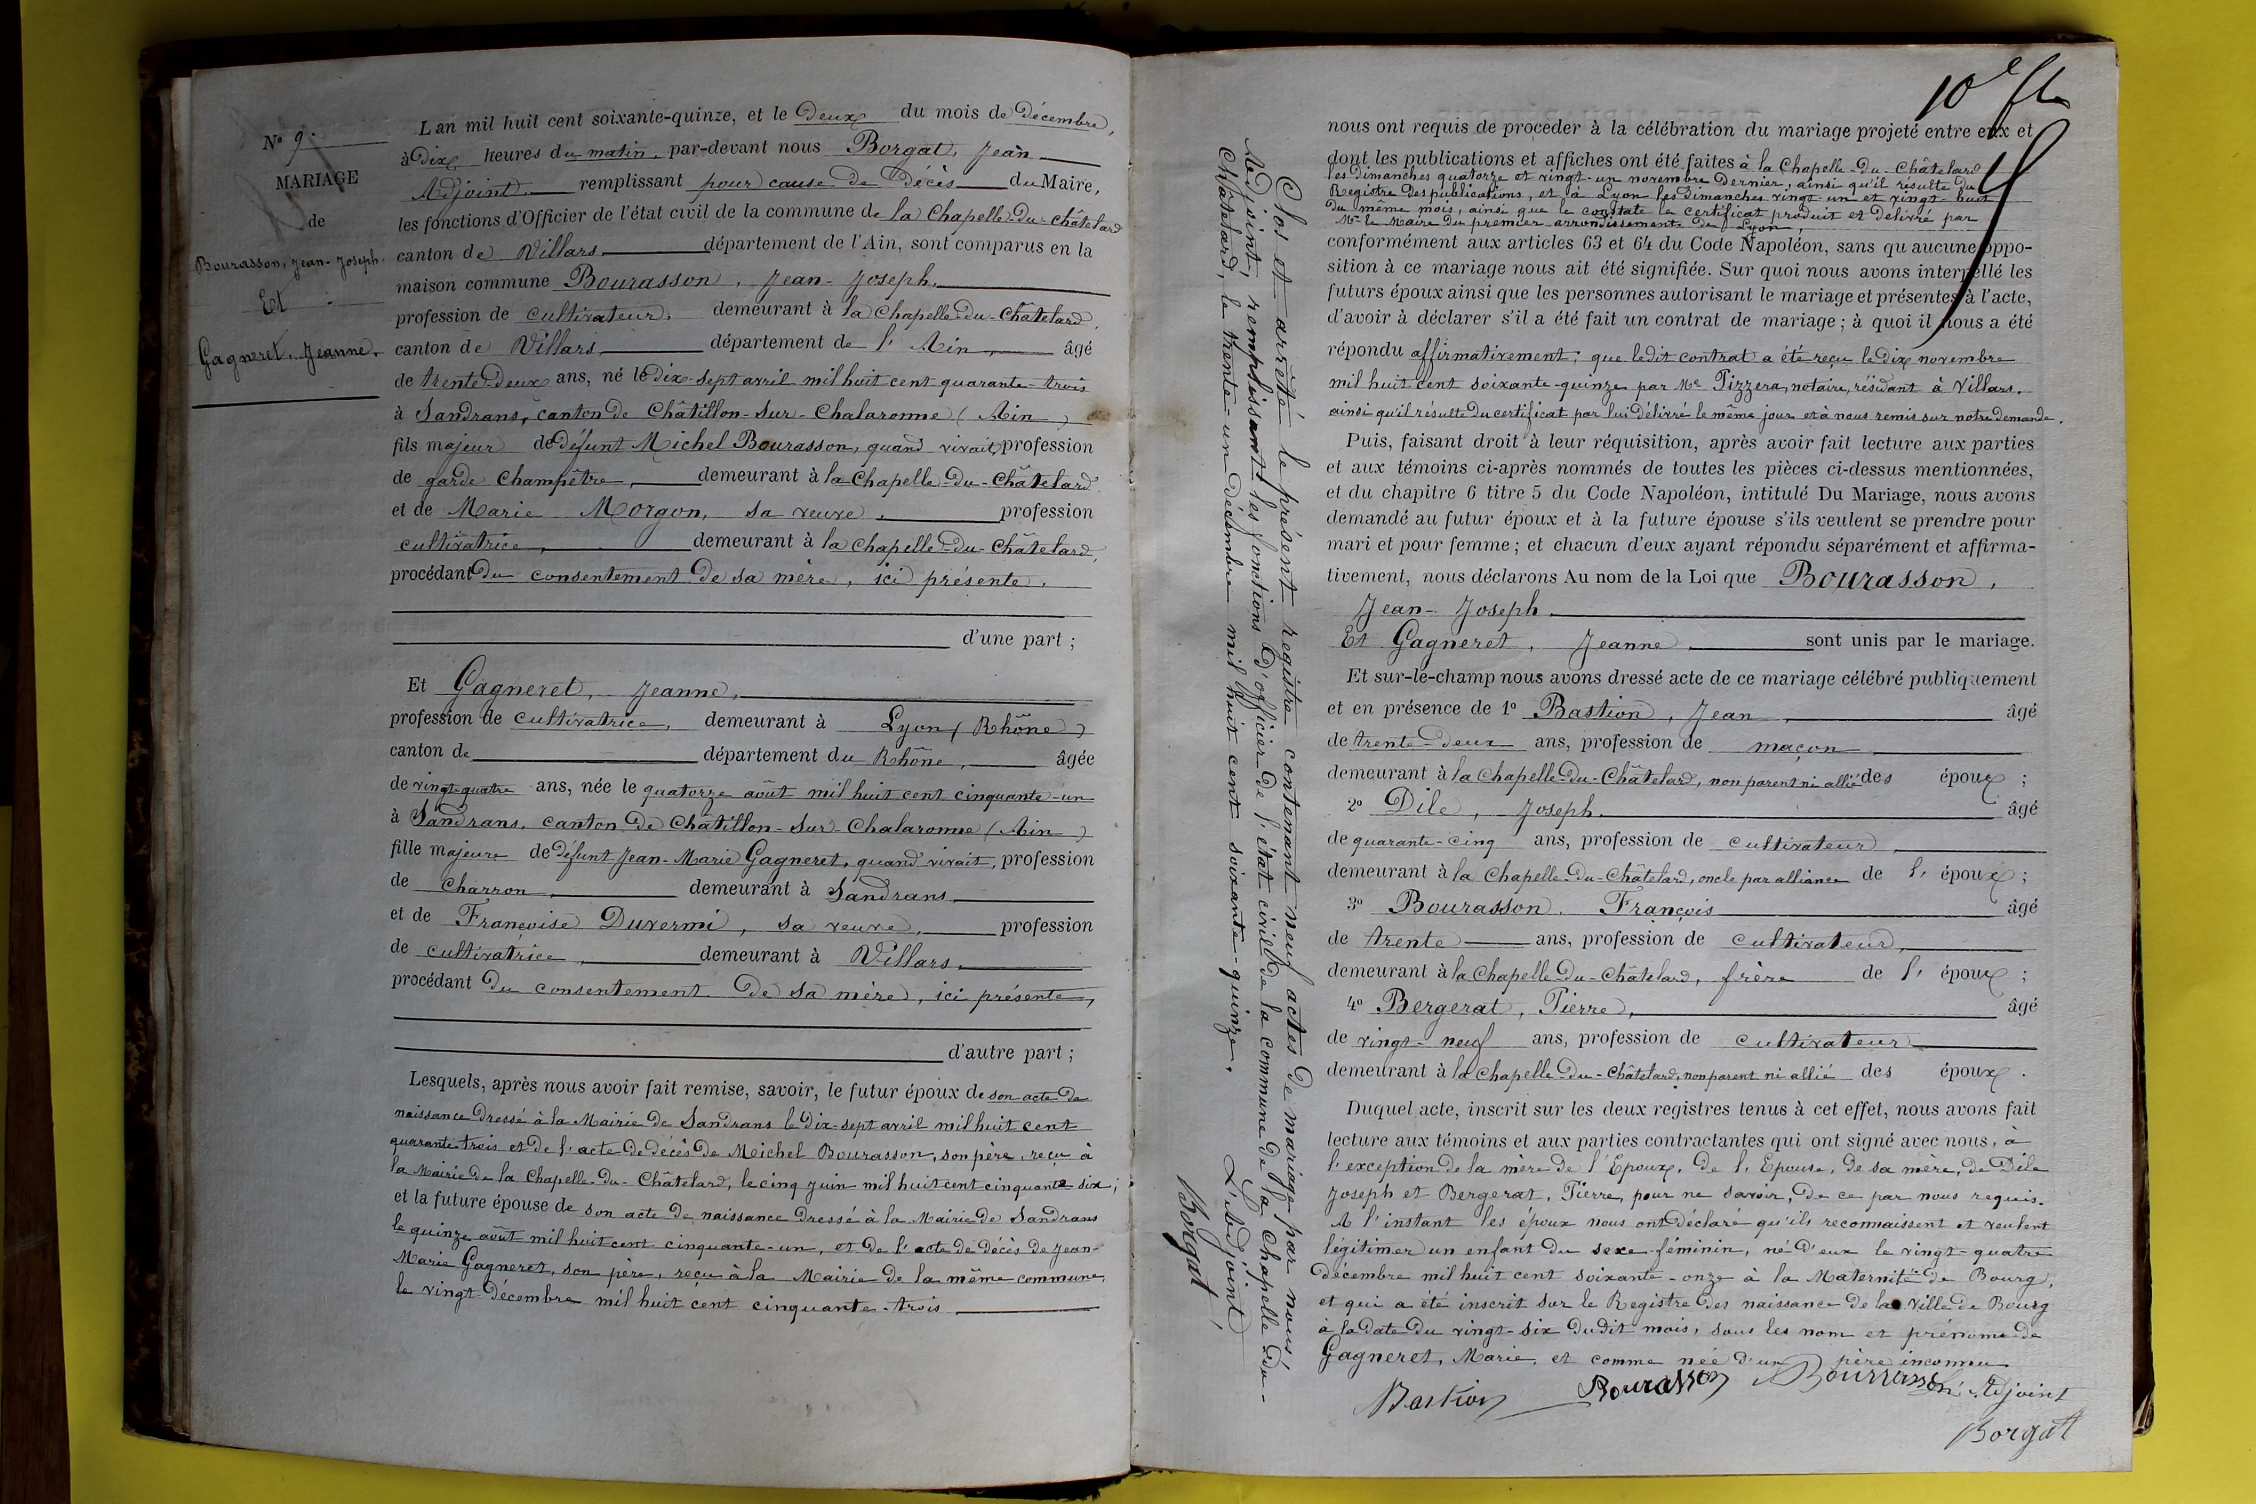 Nº 9.
MARIAGE
de
Bourasson, Jean-Joseph.
Et
Gagneret, Jeanne.
L'an mil huit cent soixante-quinze, et le Deux du mois de Décembre,
à Dix heures du matin, par-devant nous Borgat, Jean
Adjoint remplissant pour cause de Décès du Maire,
les fonctions d'Officier de l'état civil de la commune de la Chapelle-du-Châtelard
canton de Villars département de l'Ain, sont comparus en la
maison commune Bourasson, Jean-Joseph,
profession de cultivateur, demeurant à la Chapelle-du-Châtelard,
canton de Villars département de l'Ain, âgé
de trente-Deux ans, né le Dix-sept avril mil huit cent quarante-trois
à Sandrans, canton de Châtillon-sur-Chalaronne (Ain)
fils majeur de défunt Michel Bourasson, quand vivait, profession
de garde Champêtre, demeurant à la Chapelle-du-Châtelard
et de Marie Morgon, sa veuve, profession
cultivatrice, demeurant à la Chapelle-du-Châtelard,
procédant du consentement de sa mère, ici présente,
d'une part ;
Et Gagneret, Jeanne,
profession de cultivatrice, demeurant à Lyon (Rhône)
canton de département du Rhône, âgée
de vingt-quatre ans, née le quatorze août mil huit cent cinquante-un
à Sandrans, canton de Châtillon-sur-Chalaronne (Ain)
fille majeure de défunt Jean-Marie Gagneret, quand vivait, profession
de charron, demeurant à Sandrans
et de Françoise Duvermi, sa veuve, profession
de cultivatrice, demeurant à Villars,
procédant du consentement de sa mère, ici présente,
d'autre part ;
Lesquels, après nous avoir fait remise, savoir, le futur époux de son acte de
naissance dressé à la Mairie de Sandrans le dix-sept avril mil huit cent
quarante-trois et de l'acte de décès de Michel Bourasson, son père, reçu à
la Mairie de la Chapelle-du-Châtelard, le cinq juin mil huit cent cinquante six ;
et la future épouse de son acte de naissance dressé à la Mairie de Sandrans
le quinze août mil huit cent cinquante-un, et de l'acte de décès de Jean-
Marie Gagneret, son père, reçu à la Mairie de la même commune,
le vingt Décembre mil huit cent cinquante-trois
10e fle
nous ont requis de proceder à la célébration du mariage projeté entre eux et
dont les publications et affiches ont été faites à la Chapelle-du-Châtelard
les dimanches quatorze et vingt-un novembre Dernier, ainsi qu'il résulte du
Registre des publications, et à Lyon les Dimanches vingt-un et vingt-huit
du même mois, ainsi que le constate le certificat produit et délivré par
Mr le Maire du premier arrondissement de Lyon,
conformément aux articles 63 et 64 du Code Napoléon, sans qu'aucune oppo-
sition à ce mariage nous ait été signifiée. Sur quoi nous avons interpellé les
futurs époux ainsi que les personnes autorisant le mariage et présentes à l'acte,
d'avoir à déclarer s'il a été fait un contrat de mariage ; à quoi il nous a été
répondu affirmativement ; que ledit contrat a été reçu le dix novembre
mil huit cent soixante-quinze par Me Pizzera, notaire, résidant à Villars,
ainsi qu'il résulte du certificat par lui délivré le même jour et à nous remis sur notre demande.
Puis, faisant droit à leur réquisition, après avoir fait lecture aux parties
et aux témoins ci-après nommés de toutes les pièces ci-dessus mentionnées,
et du chapitre 6 titre 5 du Code Napoléon, intitulé Du Mariage, nous avons
demandé au futur époux et à la future épouse s'ils veulent se prendre pour
mari et pour femme ; et chacun d'eux ayant répondu séparément et affirma-
tivement, nous déclarons Au nom de la Loi que Bourasson,
Jean-Joseph
Et Gagneret, Jeanne, sont unis par le mariage.
Et sur-le-champ nous avons dressé acte de ce mariage célébré publiquement
et en présence de 1º Bastion, Jean, âgé
de trente-deux ans, profession de maçon
demeurant à la Chapelle-du-Châtelard, non parent ni allié des époux ;
2º Dile, Joseph. âgé
de quarante-cinq ans, profession de cultivateur,
demeurant à la Chapelle-du-Châtelard, oncle par alliance de l'époux ;
3º Bourasson, François âgé
de trente ans, profession de cultivateur,
demeurant à la Chapelle-du-Châtelard, frère de l'époux ;
4º Bergerat, Pierre, âgé
de vingt-neuf ans, profession de cultivateur
demeurant à la Chapelle-du-Châtelard, non parent ni allié des époux.
Duquel acte, inscrit sur les deux registres tenus à cet effet, nous avons fait
lecture aux témoins et aux parties contractantes qui ont signé avec nous, à
l'exception de la mère de l'Epoux, de l'Epouse, de sa mère, de Dile
Joseph et Bergerat, Pierre, pour ne savoir, de ce par nous requis.
A l'instant les époux nous ont déclaré qu'ils reconnaissent et veulent
légitimer un enfant du sexe féminin, né d'eux le vingt-quatre
décembre mil huit cent soixante-onze à la Maternité de Bourg,
et qui a été inscrit sur le Registre des naissance de la ville de Bourg
à la date du vingt-six dudit mois, sous les nom et prénoms de
Gagneret, Marie, et comme née d'un père inconnu.
Bastion Bourasson Bourrasson Adjoint
Borgat
Clos et arrêté le présent registre contenant neuf actes de mariage par nous,
Adjoint, remplissant les fonctions d'officier de l'état civil de la commune de la Chapelle-du-
Châtelard, le trente-un décembre mil huit cent soixante-quinze. L'Adjoint
Borgat